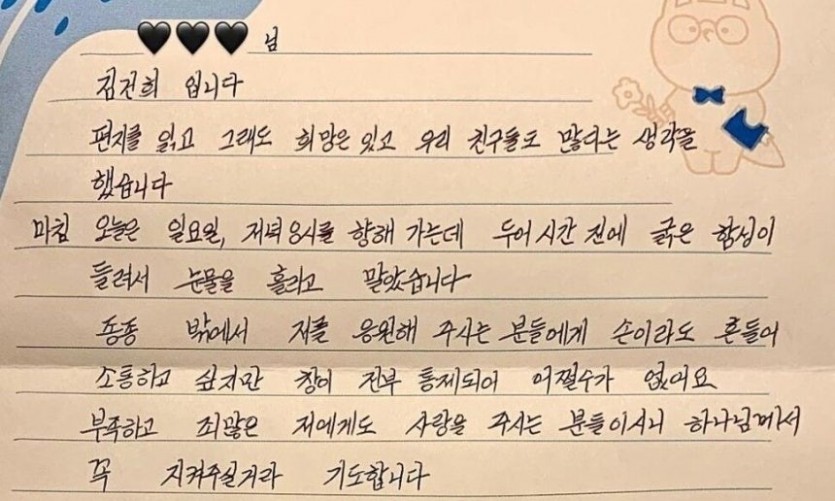 🖤🖤🖤님
김건희 입니다
편지를 읽고 그래도 희망은 있고 우리 친구들도 많다는 생각을
했습니다
마침 오늘은 일요일, 저녁 8시를 향해 가는데 두어 시간 전에 굵은 함성이
들려서 눈물을 흘리고 말았습니다
종종 밖에서 저를 응원해 주시는 분들에게 손이라도 흔들어
소통하고 싶지만 창이 전부 통제되어 어쩔수가 없어요
부족하고 죄많은 저에게도 사랑을 주시는 분들이시니 하나님께서
꼭 지켜주실거라 기도합니다